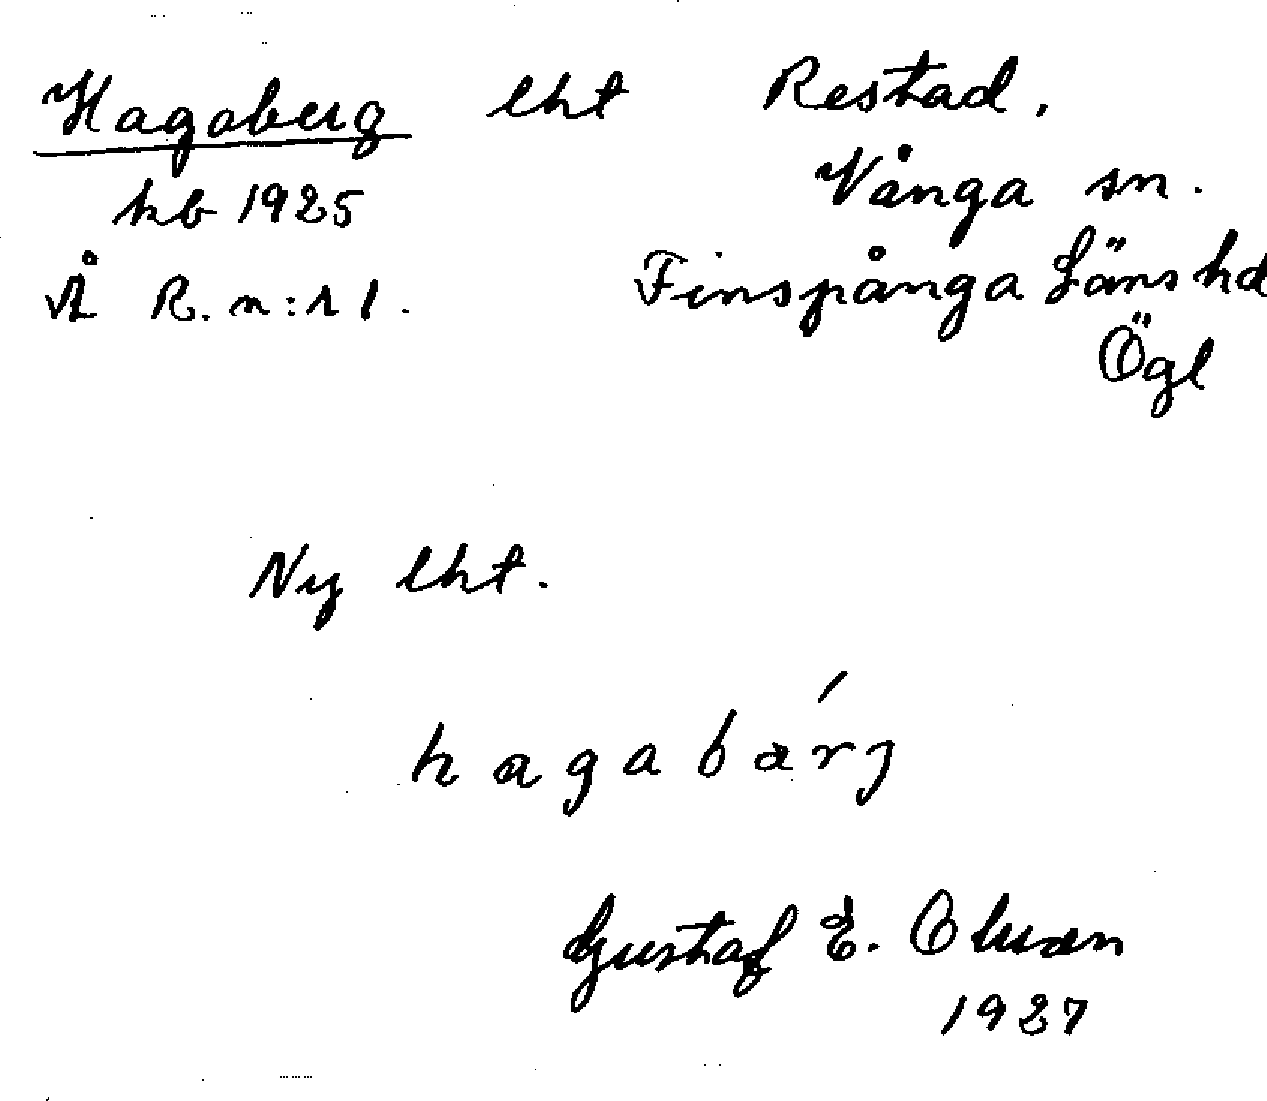 Hagaberg lht Restad.
Vånga sn.
kb 1925
Å R. n:r 1. Finspånga Läns hd
Ögl
Ny lht.
hagabærj
Gustaf E.
1927